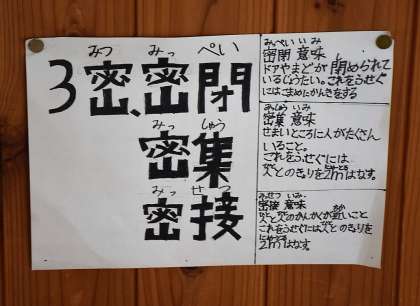 みつ みっ ぺい
3密、密閉
みっ しゅう
密集
みっ せつ
密接
みぺい いみ
密閉 意味
し
ドアやまどが閉められて
いるじょうたい。これをふせぐ
にはこまめにかんきをする
みしゅう いみ
密集 意味
せまいところに人がたくさん
いること。
これをふせぐには
人と人のきょりを2mはなす。
みせつ いみ
密接 意味
人と人のかんかくが近いこと
これをふせぐには人と人のきょりを
2mはなす。